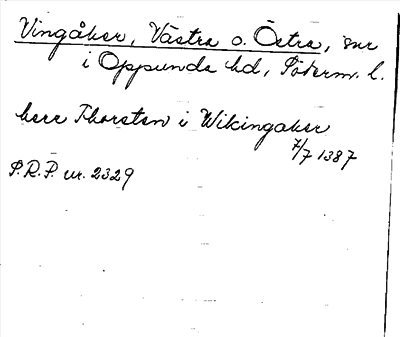 Vingåker, Västra o. Östra, snr
i Oppunda hd, Söderm. l.
herr Thorsten i Wikingaker
7/7 1387
P.R.P. nr. 2329